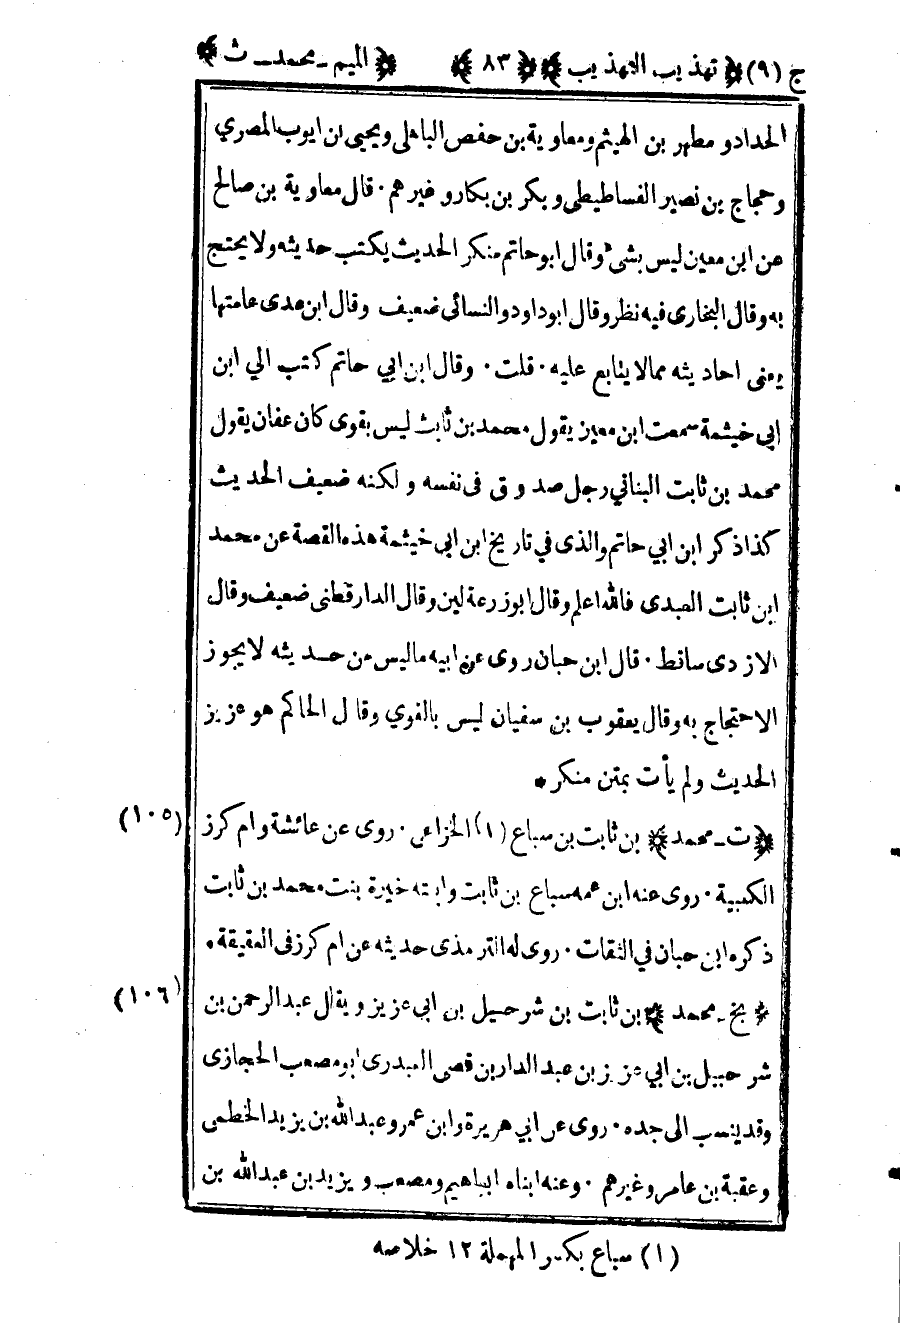 ج (٩) ﴿ تهذيب التهذيب ﴾ ﴿ ٨٣ ﴾ ﴿ الميم ـ محمد ـ ث ﴾
الحداد و مطهر بن الهيثم ومعاوية بن حفص الباهلى ويحيى بن ايوب المصري
وحجاج بن نصير الفساطيطى وبكر بن بكار وغيرهم ۰ قال معاوية بن صالح
عن ابن معين ليس بشىء وقال ابو حاتم منكر الحديث يكتب حديثه ولا يحتج
به وقال البخارى فيه نظر وقال ابو داود والنسائى ضعيف وقال ابن عدى عامتها
يعنى احاديثه ممالا يتابع عليه ۰ قلت ۰ وقال ابن ابي حاتم كتب الي ابن
ابي خيثمة سمعت ابن معين يقول محمد بن ثابت ليس بقوى كان عفان يقول
محمد بن ثابت البناني رجل صدوق فى نفسه و لكنه ضعيف الحديث
كذا ذكر ابن ابي حاتم والذى في تاريخ ابن ابى خيثمة هذه القصة عن محمد
ابن ثابت العبدى فالله اعلم وقال ابو زرعة لين وقال الدارقطنى ضعيف وقال
الازدى ساقط ۰ قال ابن حبان روى عن ابيه ماليس من حديثه لا يجوز
الاحتجاج به وقال يعقوب بن سفيان ليس بالقوي وقال الحاكم هو عزيز
الحديث ولم يأت بمتن منكر *
﴿ ت ـ محمد ﴾ بن ثابت بن سباع (١) الخزاعى ۰ روى عن عائشة وام كرز (١٠٥)
الكعبية ۰ روى عنه ابن عمه سباع بن ثابت وابنته خيرة بنت محمد بن ثابت
ذكره ابن حبان في الثقات ۰ روى له الترمذى حديثه عن ام كرز فى العقيقة *
﴿ بخ ـ محمد ﴾ بن ثابت بن شرحبيل بن ابي عزيز ويقال عبد الرحمن بن (١٠٦)
شرحبيل بن ابي عزيز بن عبد الدار بن قصى العبدرى ابو مصعب الحجازى
وقد ينسب الى جده ۰ روى عن ابي هريرة وابن عمر وعبد الله بن يزيد الخطمى
وعقبة بن عامر وغيرهم ۰ وعنه ابناه ابراهيم ومصعب ويزيد بن عبد الله بن
(١) سباع بكسر المهملة ١٢ خلاصه